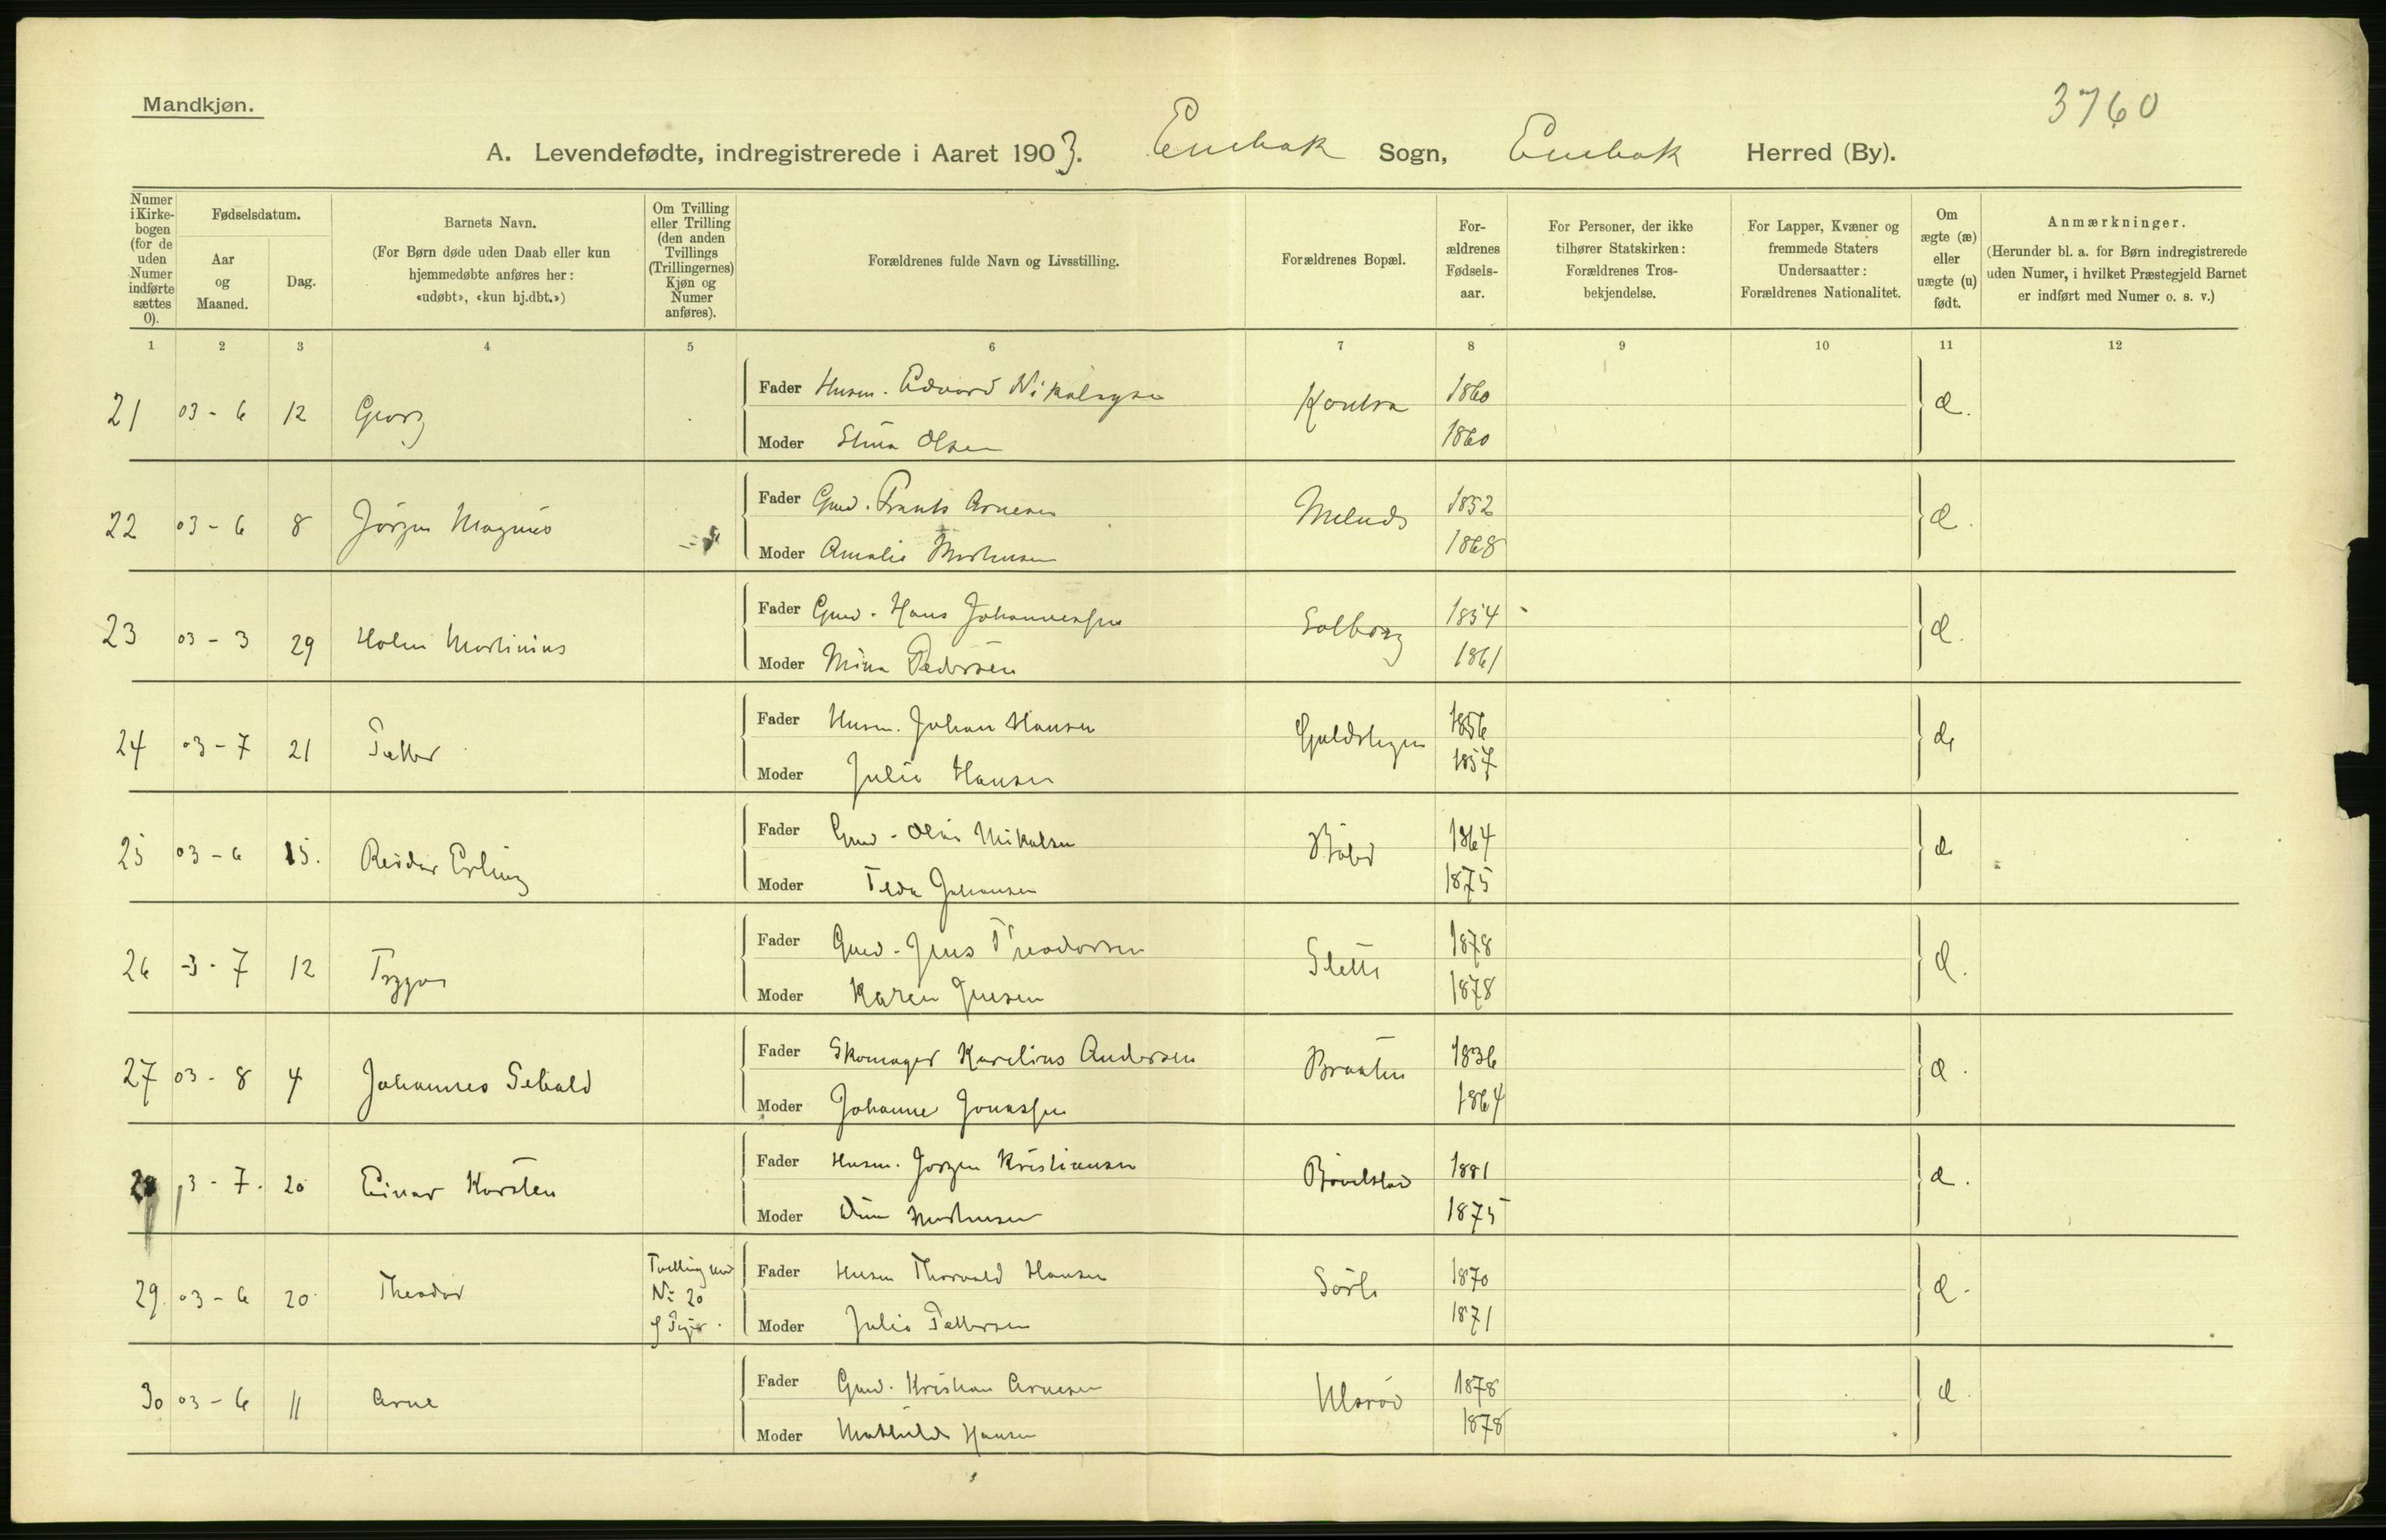 Mandkjøn.
3760
A. Levendefødte, indregistrerede i Aaret 1903. Enebak Sogn, Enebak Herred (By).
Numer i Kirkebogen (for de uden Numer indførte sættes 0).
Fødselsdatum.
Aar og Maaned.
Dag.
Barnets Navn.
(For Børn døde uden Daab eller kun hjemmedøbte anføres her: «udøbt», «kun hj.dbt.»)
Om Tvilling eller Trilling (den anden Tvillings (Trillingernes) Kjøn og Numer anføres).
Forældrenes fulde Navn og Livsstilling.
Forældrenes Bopæl.
Forældrenes Fødselsaar.
For Personer, der ikke tilhører Statskirken: Forældrenes Trosbekjendelse.
For Lapper, Kvæner og fremmede Staters Undersaatter: Forældrenes Nationalitet.
Om ægte (æ) eller uægte (u) født.
Anmærkninger.
(Herunder bl. a. for Børn indregistrerede uden Numer, i hvilket Præstegjeld Barnet er indført med Numer o. s. v.)
1 2 3 4 5 6 7 8 9 10 11 12
21 03 - 6 12 Georg Fader Husm. Edvard Nikolaysen 1860 æ.
Moder Stina Olsen 1860
22 03 - 6 8 Jörgen Magnus Fader Gmd. Frants Arnesen 1852 æ.
Moder Amalie Mathisen 1868
23 03 - 3 29 Holm Martinius Fader Gmd. Hans Johannessen Solberg 1854 æ.
Moder Mina Pedersen 1861
24 03 - 7 21 Petter Fader Husm. Johan Hansen 1856 æ
Moder Julie Hansen 1857
25 03 - 6 15. Reidar Erling Fader Gmd. Mikalsen 1864 æ
Moder Johansen 1875
26 -3 - 7 12 Trygve Fader Gmd. Jens Theodorsen Sletta 1878 æ.
Moder Karen Jensen 1878
27 03 - 8 4 Johannes Sebald Fader Skomager Karelius Andersen Braaten 1836 æ.
Moder Johanne Jonassen 1864
28 3 - 7. 20 Einar Karsten Fader Husm. Jørgen Kristiansen 1881 æ.
Moder Mathisen 1875
29. 03 - 6 20 Theodor Tvilling med Fader Husm Thorvald Hansen 1870 æ.
No 20
af Piger. Moder Julie Pettersen 1871
30 03 - 6 11 Arne Fader Gmd. Kristian Arnesen Ulsrød 1878 æ
Moder Mathilde Hansen 1878